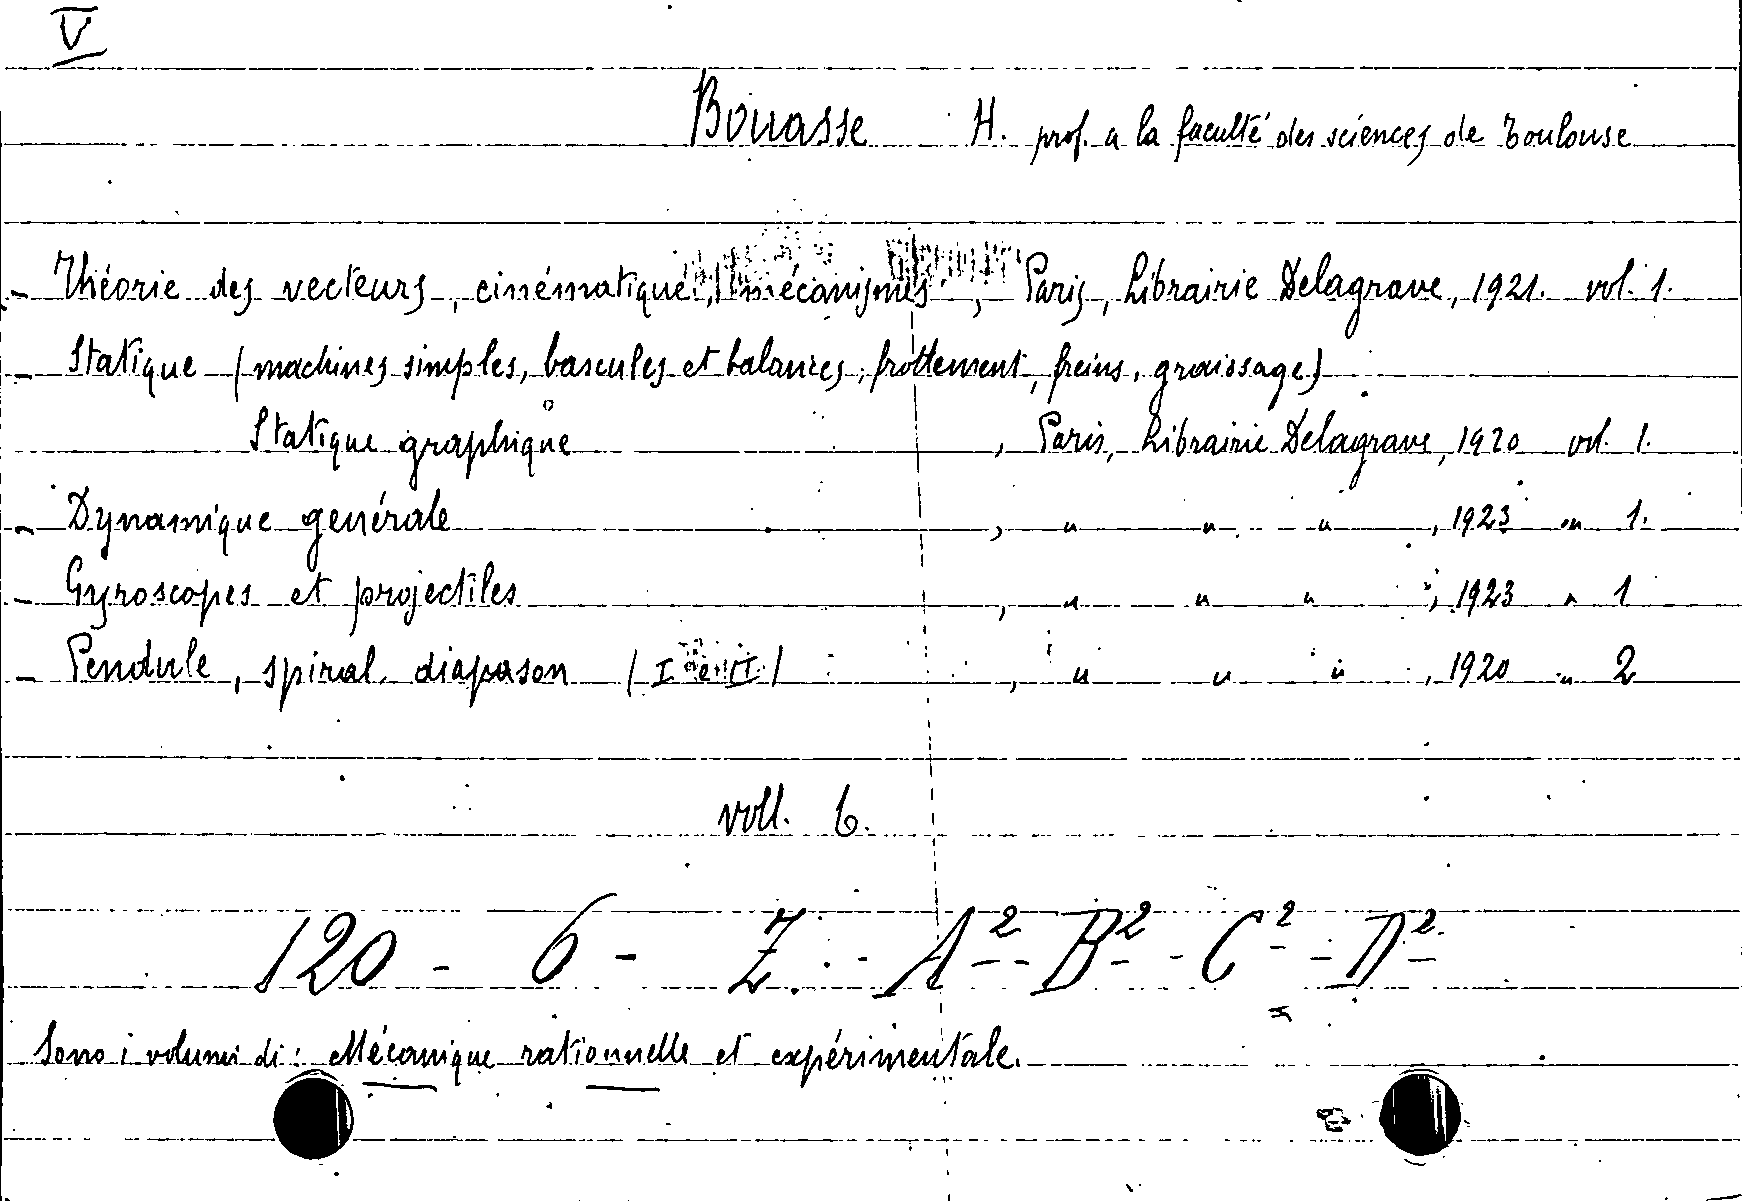 V
Bouasse H. prof. a la faculté des sciences de Toulouse
- Théorie des vecteurs, cinématique, mécanismes, Paris, Librairie Delagrave, 1921. vol. 1.
- Statique (machines simples, bascules et balances, frottement, freins, graissage)
Statique graphique, Paris, Librairie Delagrave, 1920 vol. 1.
- Dynamique générale, " " ", 1923 " 1.
- Gyroscopes et projectiles, " " ", 1923 " 1
- Pendule, spiral, diapason (I e II), " " ", 1920 " 2
voll. 6.
120 - 6 - Z. - A² - B² - C² - D²
Sono i volumi di: Mécanique rationnelle et expérimentale.